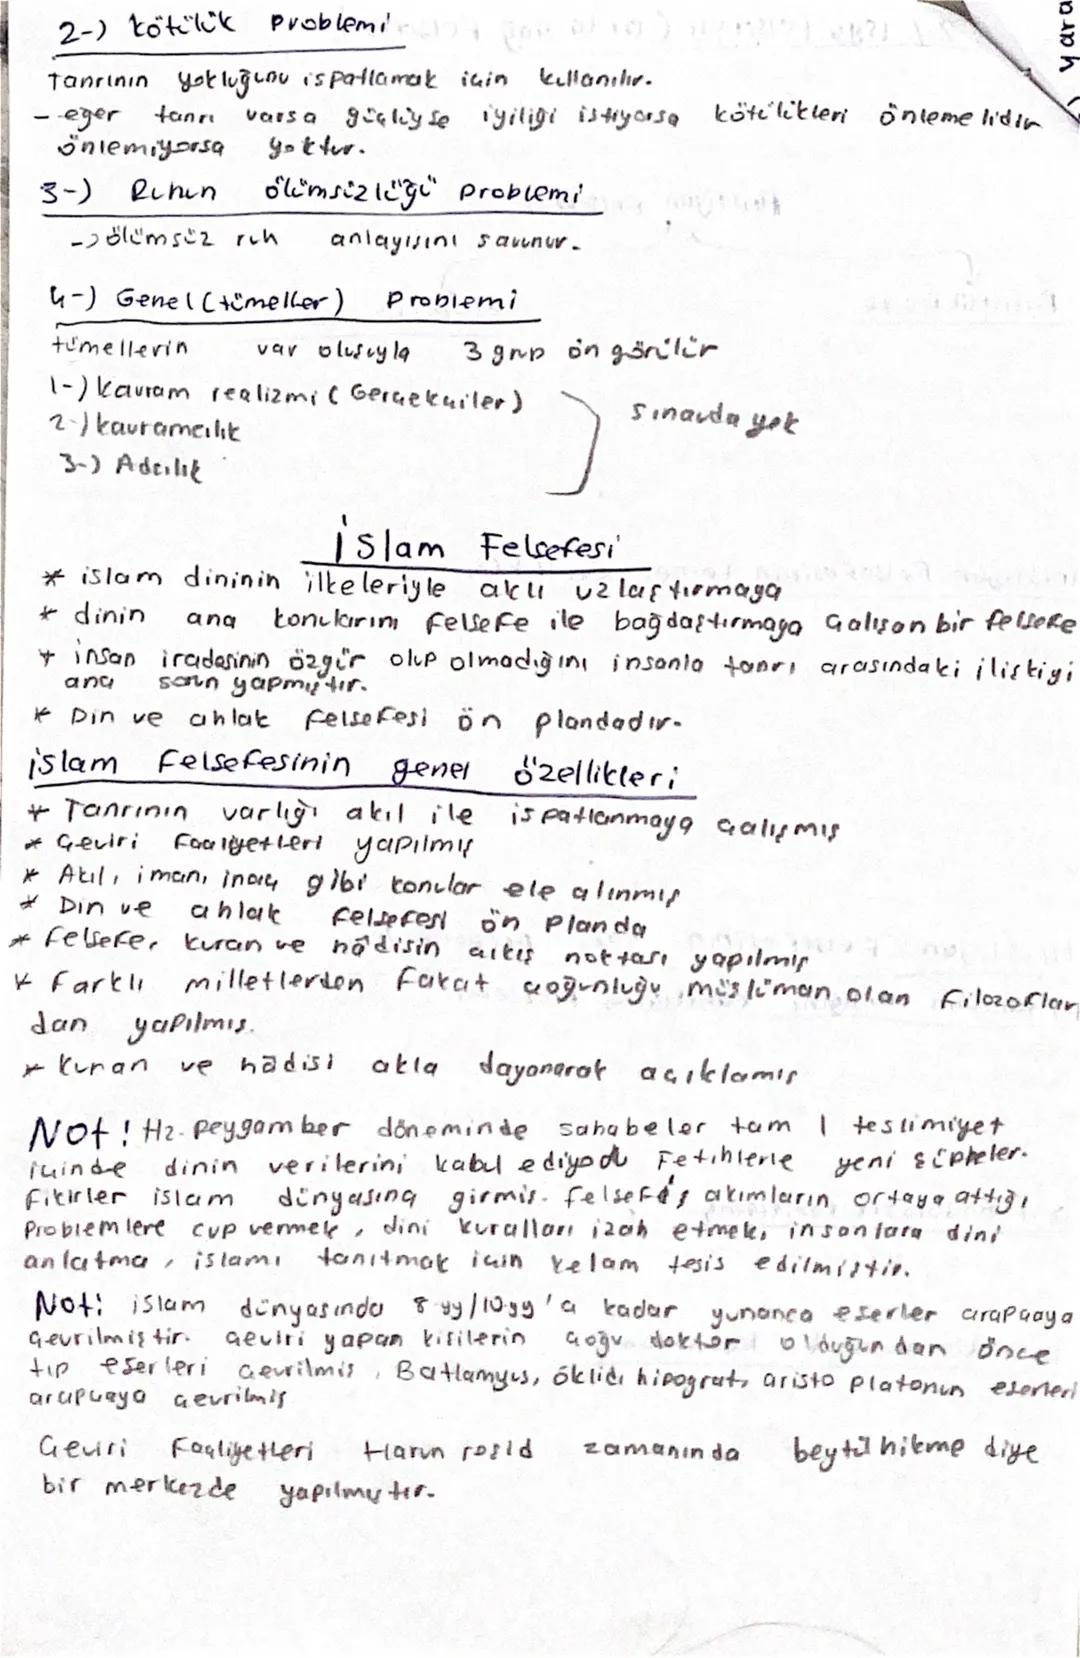 2-) kötülük Problemi
Tanrının yokluğunu ispatlamak için kullanılır.
- eğer tanrı varsa güçlüyse iyiliği istiyorsa kötülükleri önlemelidir
önlemiyorsa yoktur.
3-) Ruhun ölümsüzlüğü Problemi
-> ölümsüz ruh anlayışını savunur.
4-) Genel (tümeller) Problemi
tümellerin var oluşuyla 3 grup ön görülür
1-) kavram realizmi (Gerçekçiler)
2-) kavramcılık
3-) Adcılık
sınavda yok
İslam Felsefesi
* islam dininin ilkeleriyle aklı uzlaştırmaya
* dinin ana konularını felsefe ile bağdaştırmaya çalışan bir felsefe
* insan iradesinin özgür olup olmadığını insanla tanrı arasındaki ilişkiyi
ana sorun yapmıştır.
* Din ve ahlak felsefesi ön plandadır.
islam Felsefesinin genel özellikleri
* Tanrının varlığı akıl ile ispatlanmaya çalışmış
* Çeviri Faaliyetleri yapılmış
* Akıl, iman, inanç gibi konular ele alınmış
* Din ve ahlak felsefesi ön Planda
* felsefe, kuran ve hadisin çıkış noktası yapılmış
* Farklı milletlerden Fakat çoğunluğu müslüman olan Filozoflar
dan yapılmış.
* Kuran ve hadisi akla dayanarak açıklamış
Not! Hz. Peygamber döneminde sahabeler tam 1 teslimiyet
içinde dinin verilerini kabul ediyodu Fetihlerle yeni şüpheler.
fikirler islam dünyasına girmiş. felsefi akımların ortaya attığı
Problemlere cvp vermek, dini kuralları izah etmek, insanlara dini
anlatma, islamı tanıtmak için kelam tesis edilmiştir.
Not: islam dünyasında 8.yy/10.yy'a kadar yunanca eserler arapçaya
çevrilmiştir. çeviri yapan kişilerin çoğu doktor olduğundan önce
tıp eserleri çevrilmiş, Batlamyus, öklid, hipograt, aristo Platonun eserleri
arapçaya çevrilmiş
Çeviri Faaliyetleri Harun reşid zamanında beytül hikme diye
bir merkezde yapılmıştır.
yara